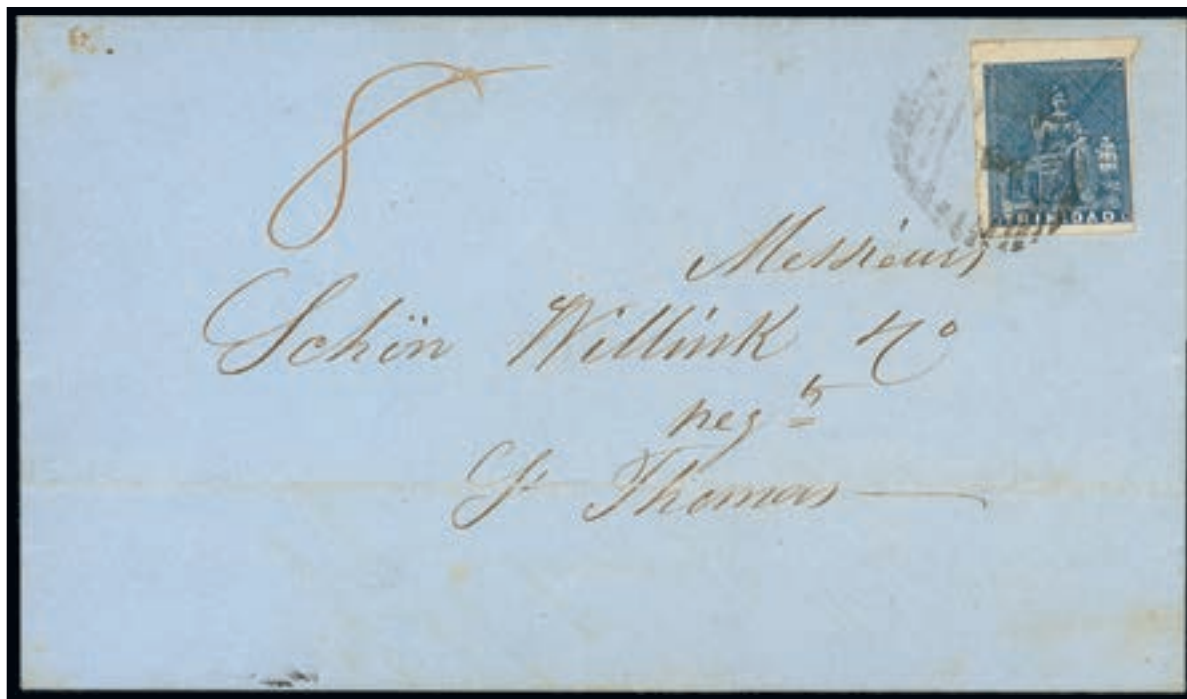 8
TRINIDAD
Messieurs
Schön Willink & Co
neg ts
St Thomas